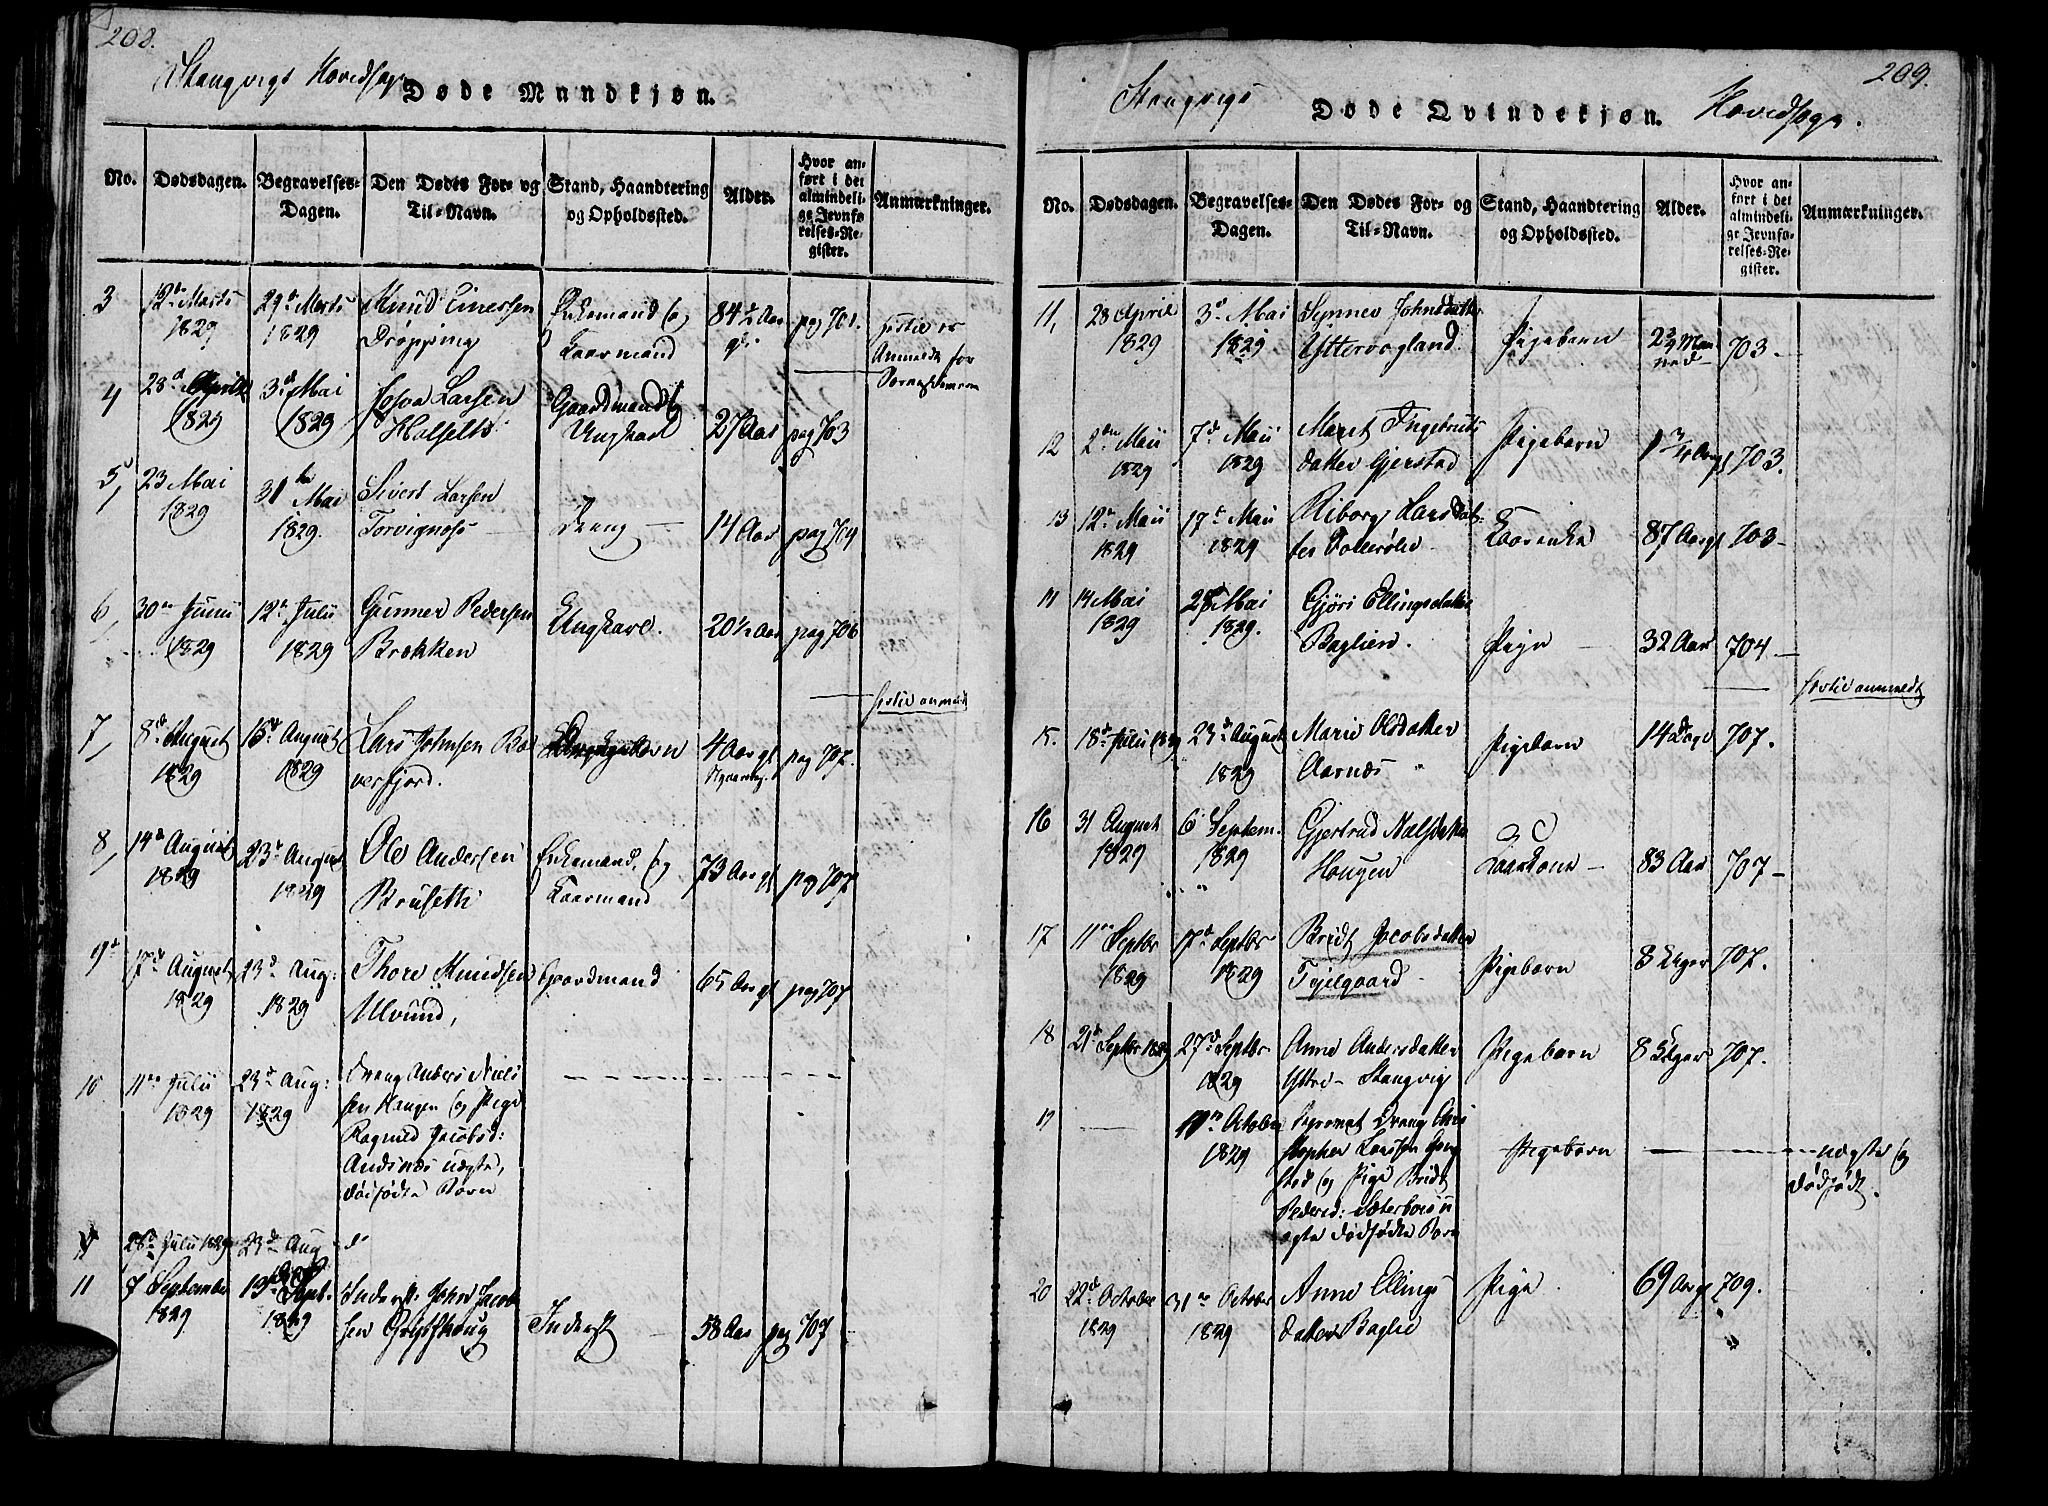 208.
Stangvigs Hovedsogn
Døde Mandkjøn.
No.
Dødsdagen.
Begravelses-
Dagen.
Den Dødes For- og
Til-Navn.
Stand, Haandtering
og Opholdssted.
Alder.
Hvor an-
ført i det
almindeli-
ge Jevnfø-
relses-Re-
gister.
Anmærkninger.
3
12te Marts
1829
29de Marts
1829
Knud Einersen
Drøpping
Enkemand og
Kaarmand
84 1/2 Aar
pag 701.
4
28de April
1829
3de Mai
1829
Josva Larsen
Halseth
Gaardmands
Ungkarl
27 Aar
pag 703
5,
23 Mai
1829
31te Mai
1829.
Sivert Larsen
Torvignæs
Dreng
14 Aar
pag 704
6,
30te Junii
1829
12te Julii
1829
Gunner Pedersen
Brekken
Ungkarl.
20 1/2 Aar
pag 706
7,
8de August
1829
16de August
1829
Lars Johnsen Bæ
verfjord.
4 Aar gl
pag 707.
8,
14de August
1829
23de August
1829
Ole Andersen
Bruseth
Enkemand, og
Kaarmand
73 Aar gl
pag 707
9de
17de August
1829
23de Aug:
1829
Thore Knudsen
Ulvund,
Gaardmand
65 Aar gl
pag 707
10
11te Julii
1829
23de Aug:
1829
Dreng Anders Niels
sen Haugen og Pige
Ragnild Jacobsd:
Andsnæs uægte,
dødfødte Barn
28de Julii 1829
23de Aug
11
7 September
1829
13de Sept.
1829
Inderst: John Jacob
sen
Inderst
58 Aar
pag 707
209.
Stangvigs
Døde Qvindekjøn.
Hovedsogn.
No.
Dødsdagen.
Begravelses-
Dagen.
Den Dødes For- og
Til-Navn.
Stand, Haandtering
og Opholdssted.
Alder.
Hvor an-
ført i det
almindeli-
ge Jevnfø-
relses-Re-
gister.
Anmærkninger.
11,
28 April
1829
3de Mai
1829
Synnev Johnsdatter
Yttervogland
Pigebarn
703
12
2den Maii
1829
7de Maii
1829
Marit Ingebrigts
datter Gjerstad
Pigebarn
1 3/4 Aar gl
703.
13
12te Maii
1829
17de Maii
1829
Riborg Larsdat-
ter
Kaarenke
87 Aar gl
703
14
14 Mai
1829
Mai
1829.
Gjøri Ellingsdatter
Baglien.
Pige
32 Aar
704
forhen anmeldt
15.
18de Julii 1829
23de August
1829
Marie Olsdatter
Aarnæs
Pigebarn
14 Dage
707.
16
31 August
1829
6 Septem.
1829
Gjertrud Nielsdatter
Haugen
Kaarkone
83 Aar
707
17
11te Septbr
1829
17de Septbr
1829
Bridt Jacobsdatter
Fiskegaard
Pigebarn
8 Uger
707.
18
21de Septbr 1829
27de Septbr
1829
Anne Andersdatter
Yttre-Stangvig
Pigebarn
8 Uger
707.
19
11te October
1829
Dreng Chri
stopher Larssen
og Pige Bridt
Pedersd:
ægte dødfødte Barn
Pigebarn
uægte og
dødfødt.
20
22de October
1829
31te October
1829
Anne Ellings
datter Baglie
Pige
69 Aar gl
709.